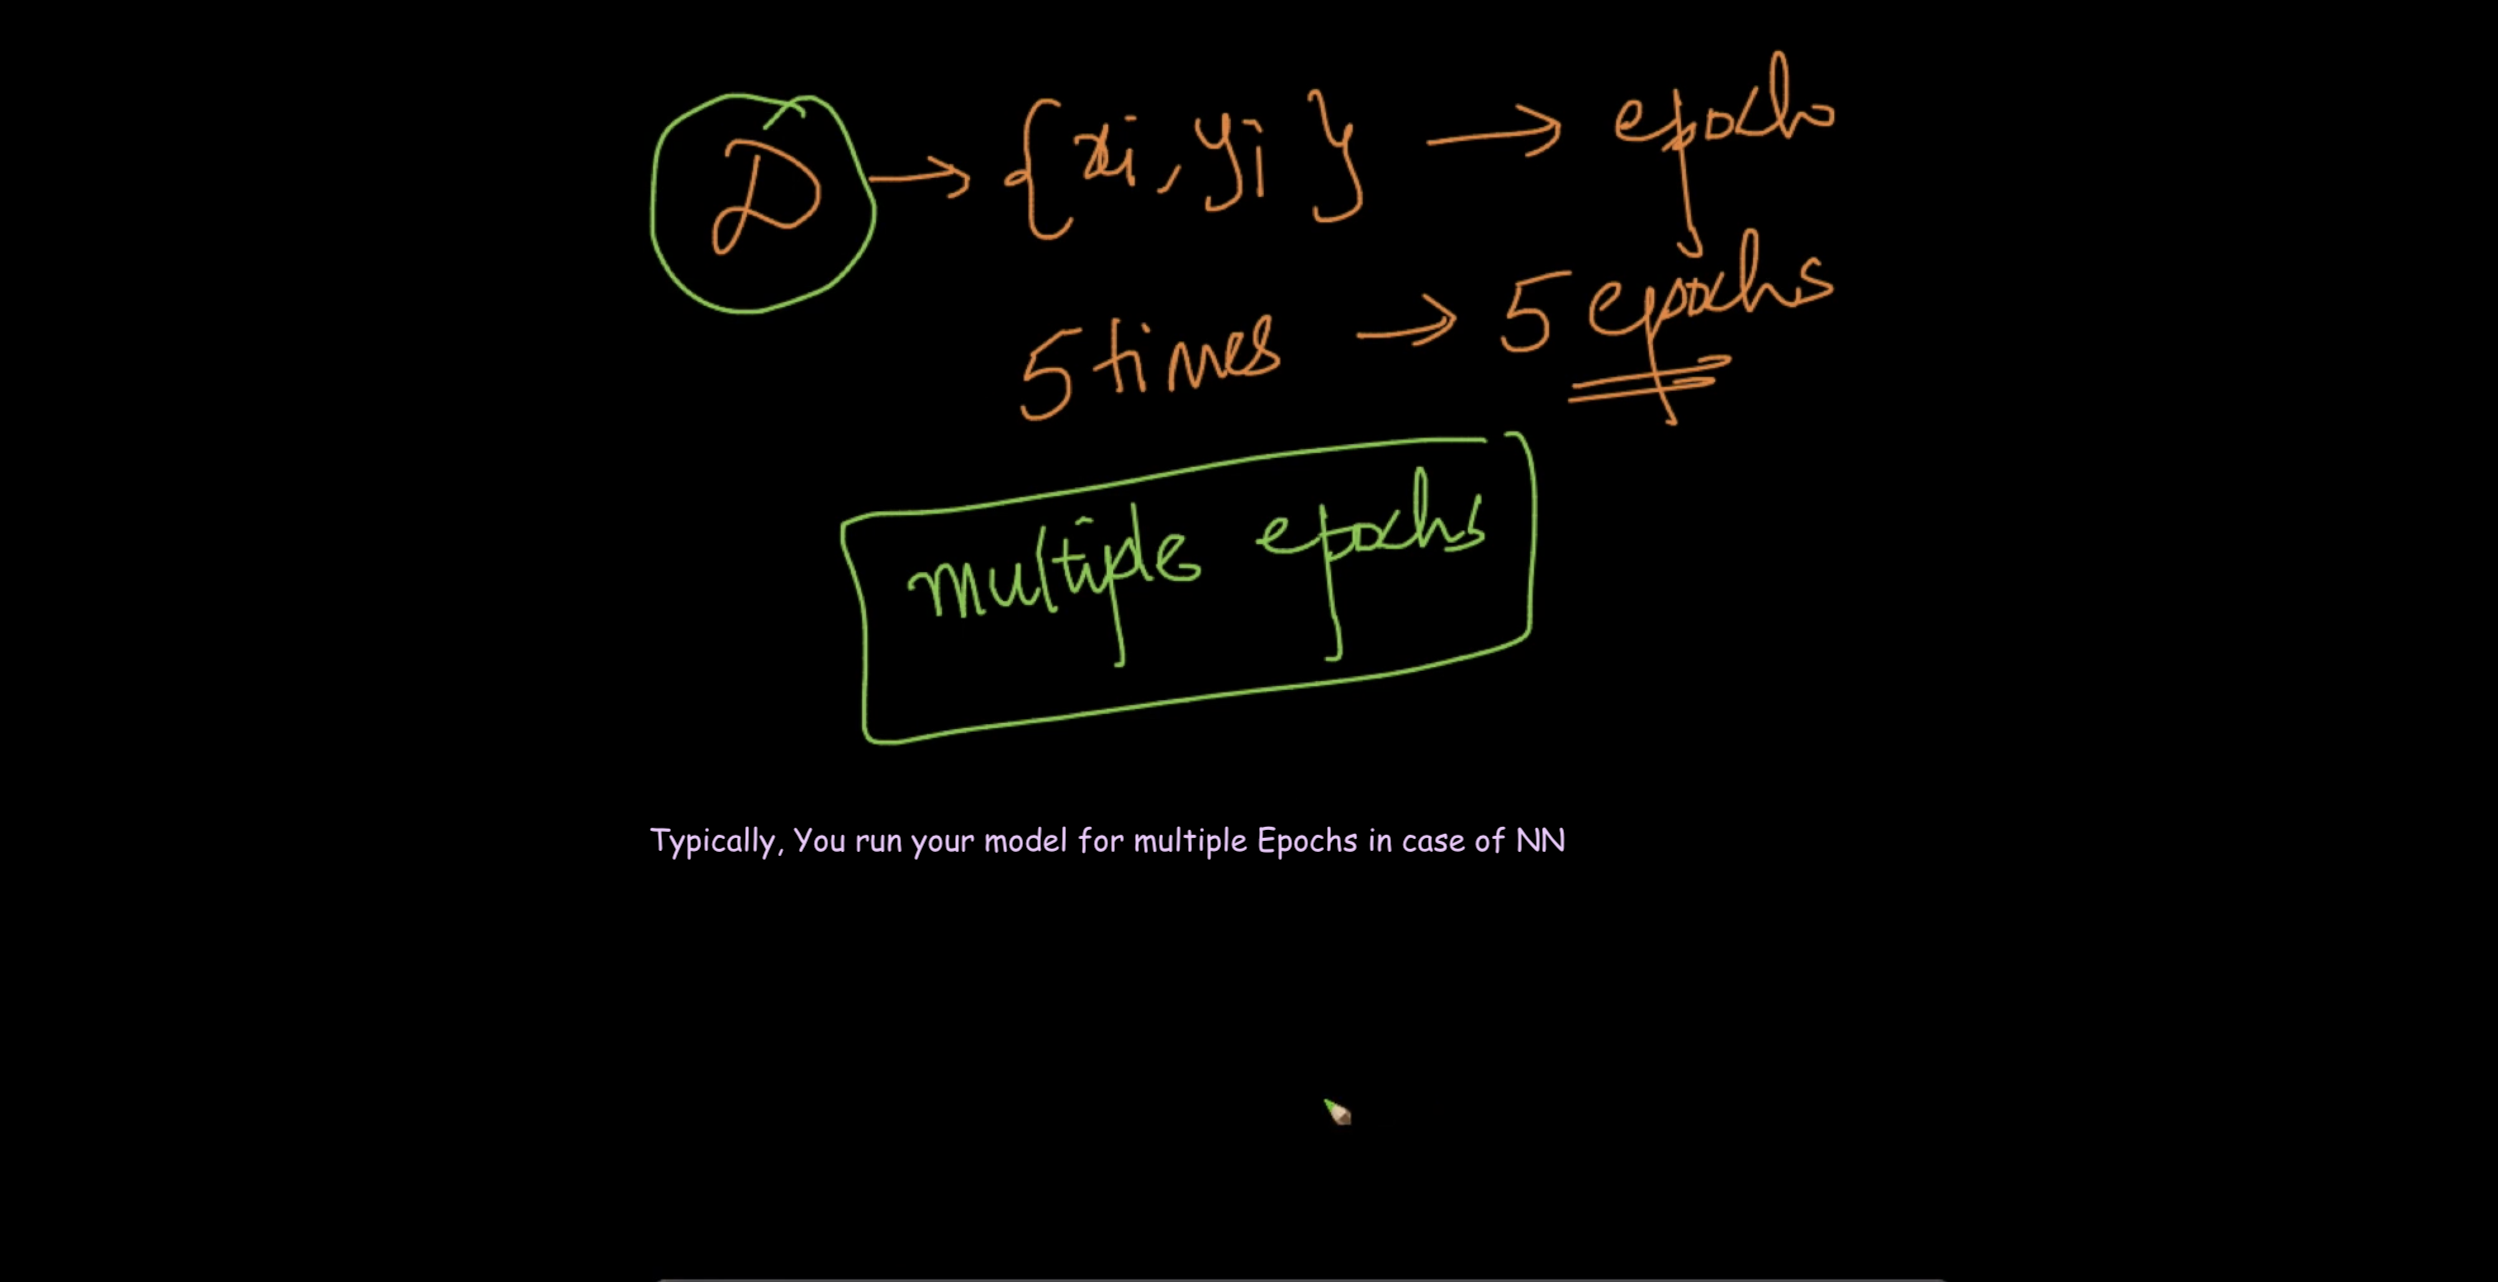 D → {xi, yi} → epoch
5 times → 5 epochs
multiple epochs
Typically, You run your model for multiple Epochs in case of NN